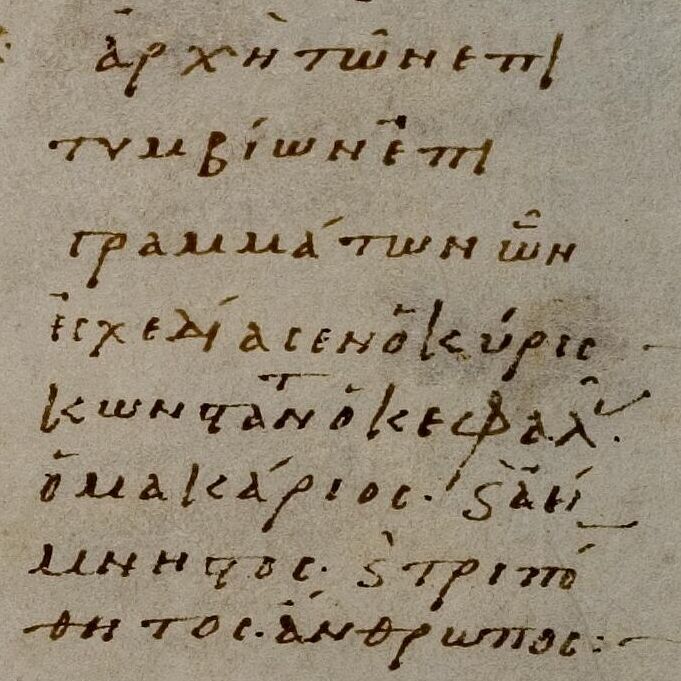 ἀρχὴ τῶν ἐπι
τυμβίων ἐπι
γραμμάτων ὧν
ἐσχεδίασεν ὁ κύριος
κωνσταντ ὁ κεφαλᾶς·
ὁ μακάριος· ϛ ἀεί
μνηστος· ϛ τριπό
θητος· ἄνθρωπος: